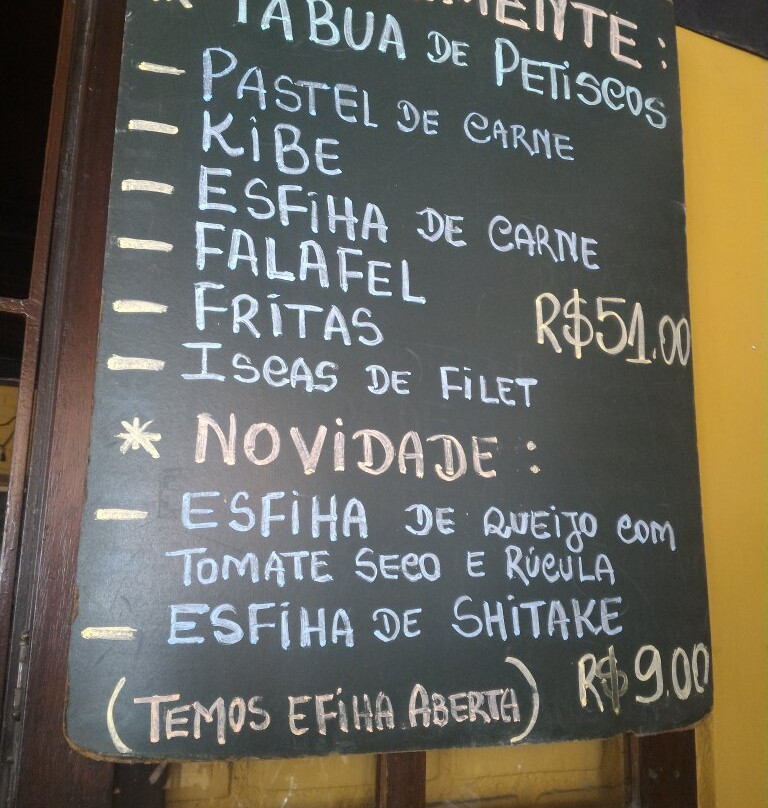 * TÁBUA DE PETISCOS
- PASTEL DE CARNE
- KIBE
- ESFIHA DE CARNE
- FALAFEL
- FRITAS R$51.00
- ISCAS DE FILET
* NOVIDADE:
- ESFIHA DE QUEIJO COM
TOMATE SECO E RÚCULA
- ESFIHA DE SHITAKE
R$9.00
(TEMOS EFIHA ABERTA)